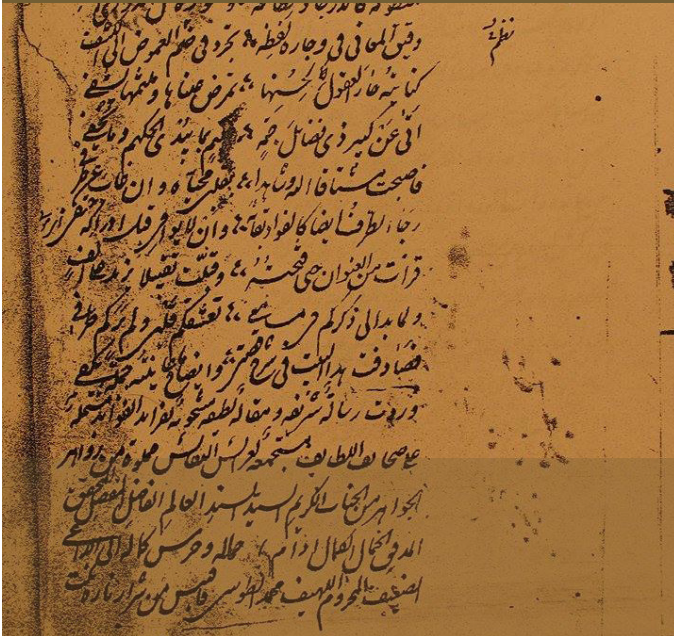 نظم
دقيق المعاني في وجازة لفظه يجرد في ضم الغموض الى الكشف
كغانية حار العقول لحسنها تمرض عيناها وملثمها يشفي
اتى عن كبير ذي فضائل جمة عليم بما يبدي الحكيم وما يخفي
فاصبحت مشتاقا اليه مشاهدا بقلبي محياه وان غاب عن طرفي
رجا الطرف ايضا كالفواد لقاءه وان لا يوافي قبل ادراكه
قرات من العنوان حين فتحته وقبلت تقبيلا يزيد على الف
ولما بدا لي ذكركم في مسامعي تعشقكم قلبي ولم يركم طرفي
فصادفت هذا البيت في شرح قصتي وايضاح ما جملة يكفي
وردت رسالة شريفه ومقالة لطيفه مشحونة بفرائد الفوائد مشتملة
على صحائف اللطايف مستجمعة لعرائس النفائس مملوة من زواهر
الجواهر من الجناب الكريم السيدي السندي العالمي الفاضلي المفضلي المحققي
المدققي الجمالي الكمالي ادام الله جماله وحرس كماله الى الداعي
الضعيف المحروم اللهيف محمد الطوسي فاقتبس من شرار ناره نكت